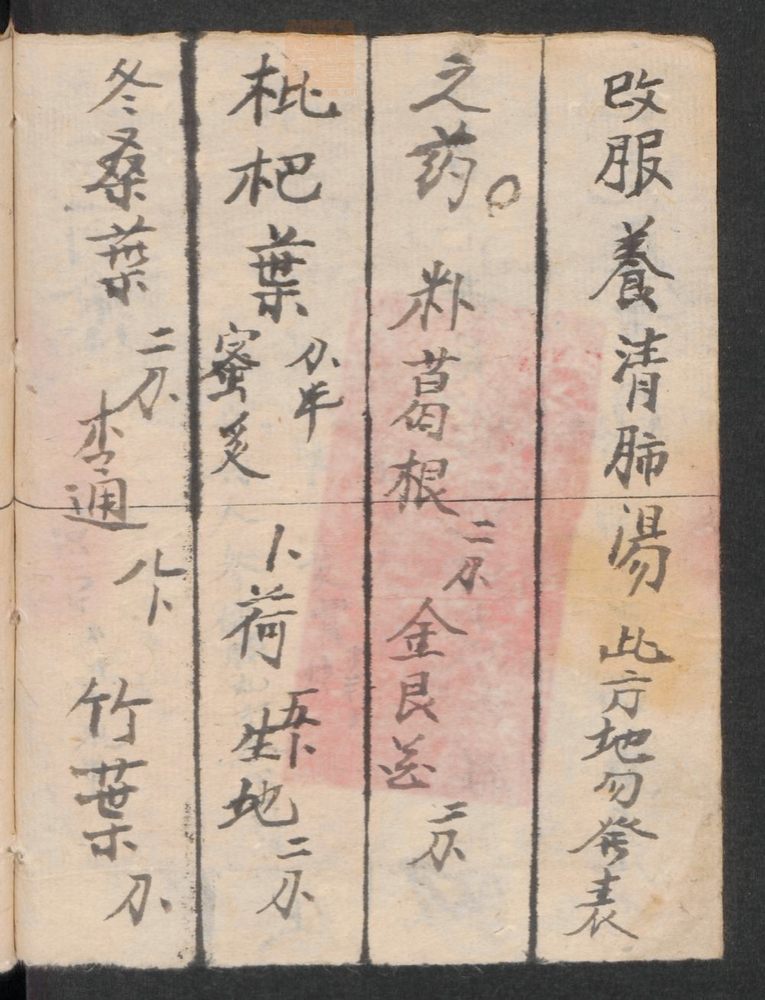 改服養清肺湯此方地勿發表
之药。粉葛根二分金艮花二分
枇杷葉分半蜜炙卜荷五卜生地二分
冬桑葉二分木通八卜竹葉分